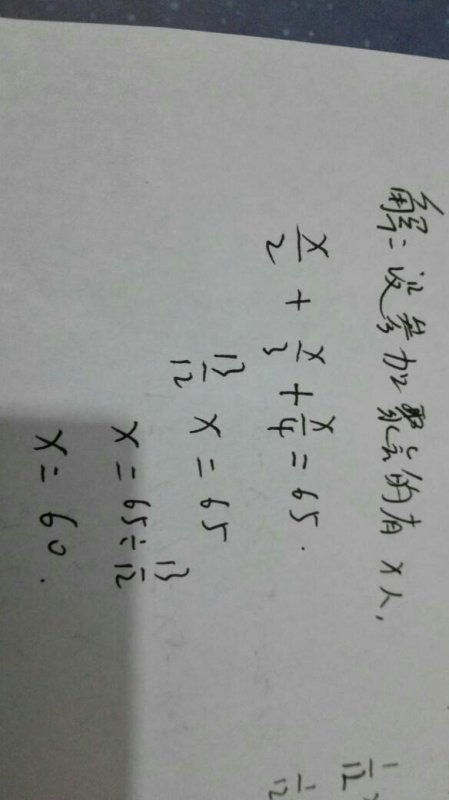 解:设参加聚会的有x人,
x/2 + x/3 + x/4 = 65.
13/12 x = 65
x = 65 ÷ 13/12
x = 60.
1/12
1/12